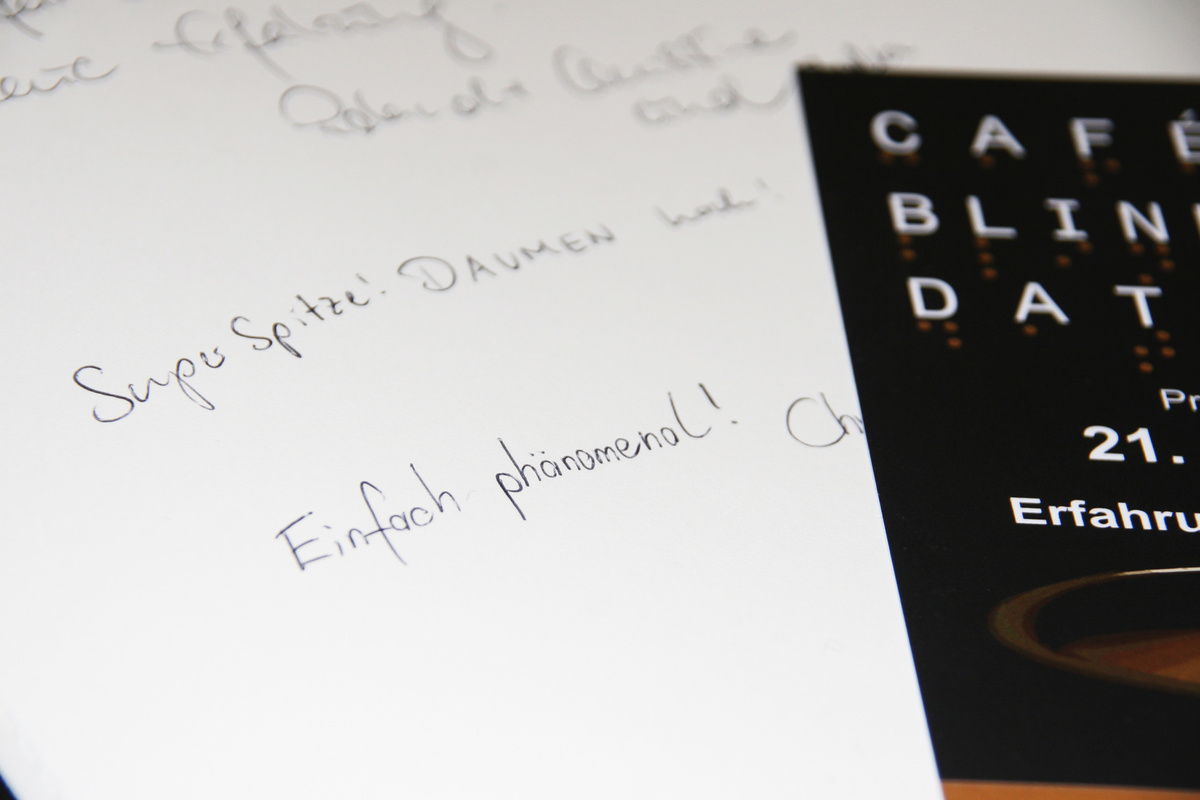 Erfahrung
Super Spitze! DAUMEN hoch!
Einfach phänomenal! Ch
CAFÉ
BLIN
DAT
Pr
21.
Erfahru